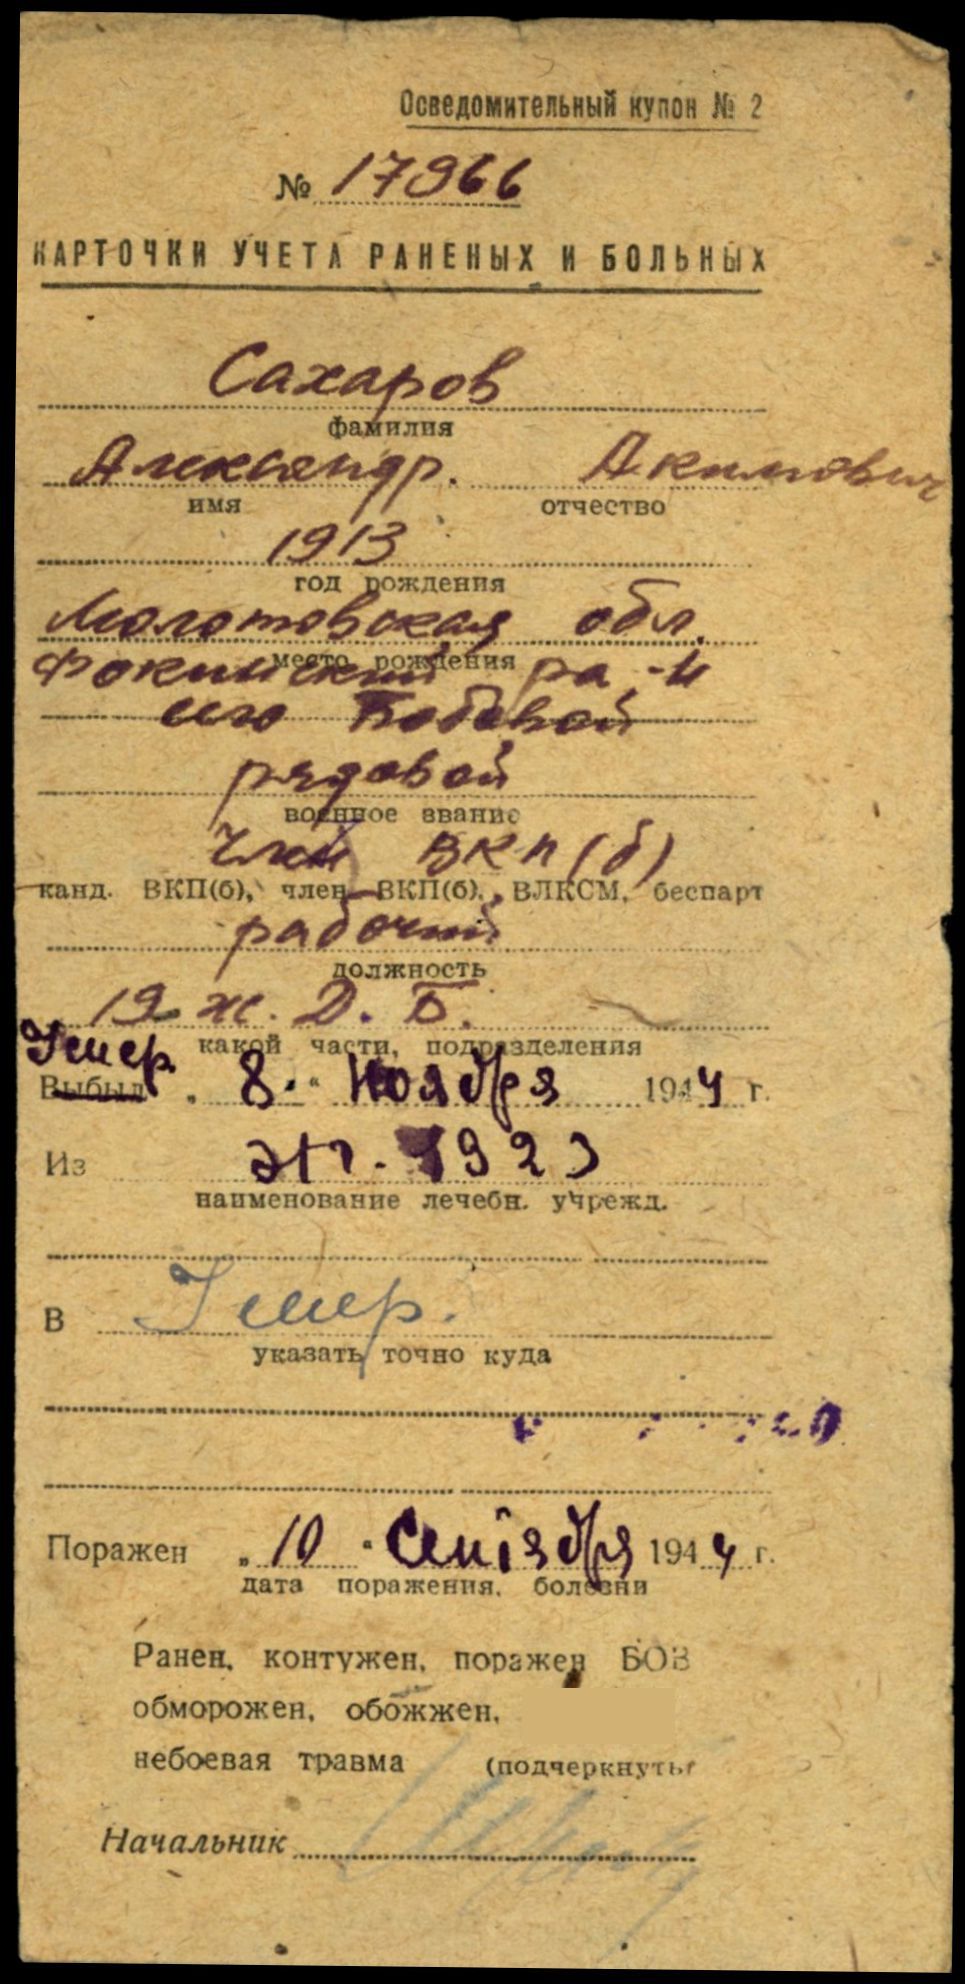 Осведомительный купон № 2
№ 17966
КАРТОЧКИ УЧЕТА РАНЕНЫХ И БОЛЬНЫХ
Сахаров
фамилия
Александр. Акимович
имя отчество
1913
год рождения
Молотовская обл.
место рождения
Фокинский ра-н
село
рядовой
военное звание
член ВКП(б)
канд. ВКП(б), член ВКП(б), ВЛКСМ, беспарт
рабочий
должность
19 ж. Д. Б.
какой части, подразделения
Умер.
Выбыл „ 8. “ Ноября 1944 г.
Из эг. 1923
наименование лечебн. учрежд.
В Умер.
указать точно куда
Поражен „ 10 “ Сентября 1944 г.
дата поражения, болезни
Ранен, контужен, поражен БОВ
обморожен, обожжен,
небоевая травма (подчеркнуть)
Начальник